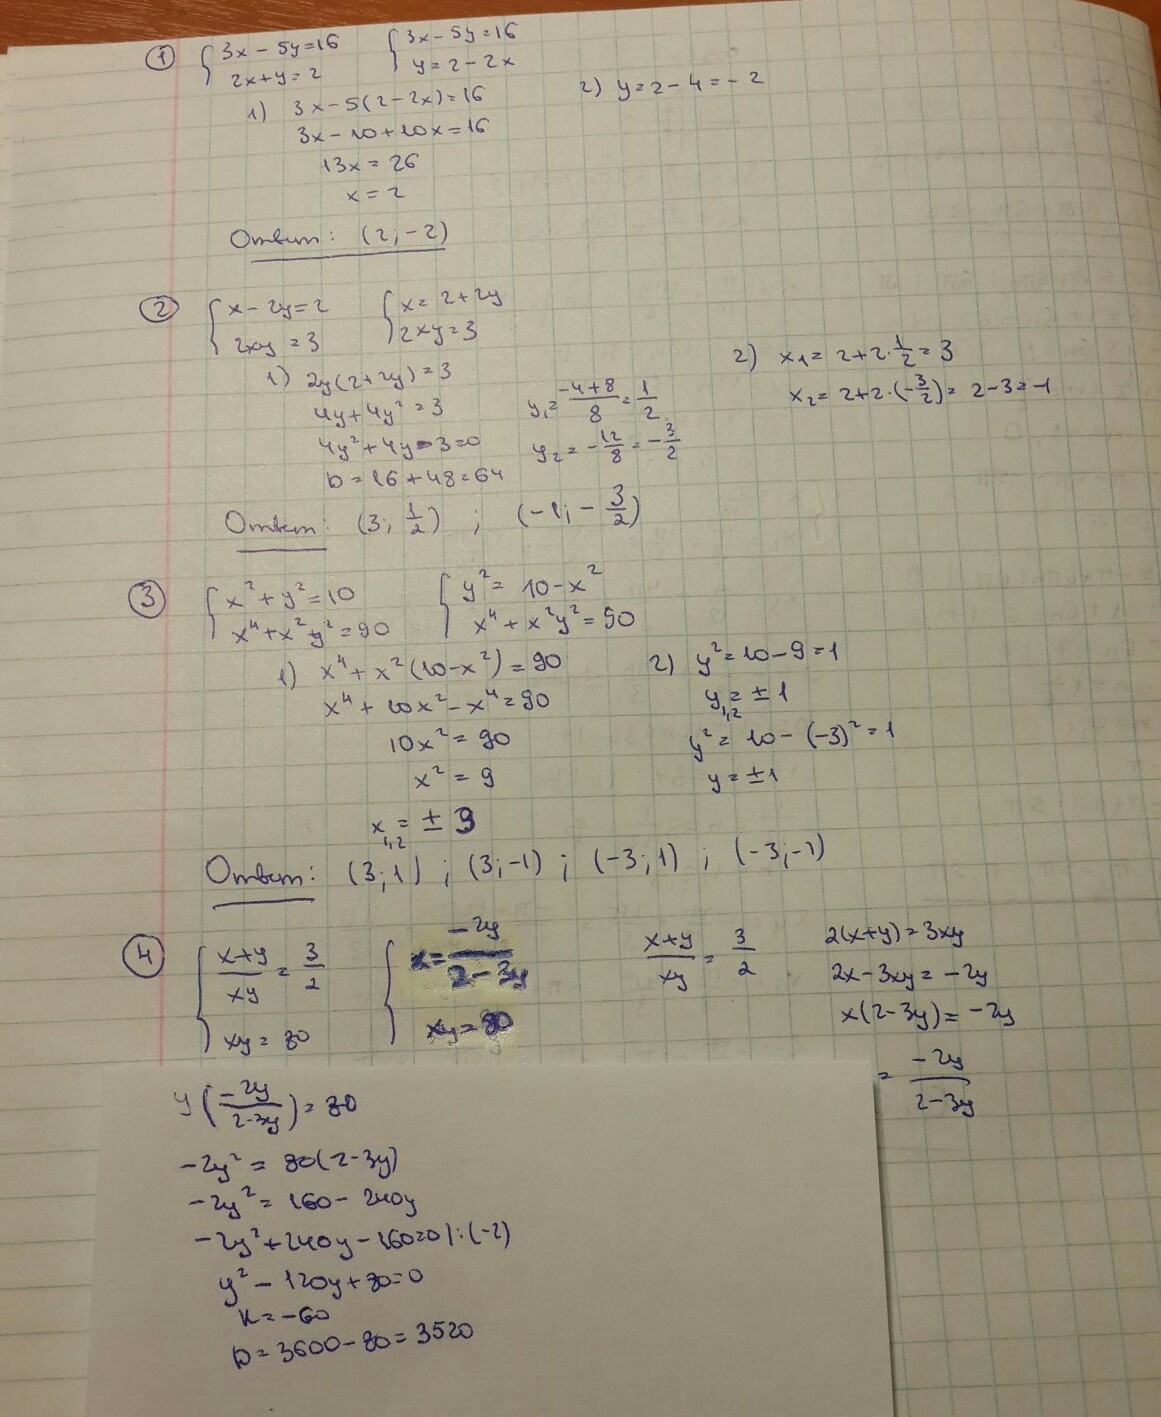 1 3x - 5y = 16 3x - 5y = 16
2x + y = 2 y = 2 - 2x
1) 3x - 5(2 - 2x) = 16 2) y = 2 - 4 = -2
3x - 10 + 10x = 16
13x = 26
x = 2
Ответ: (2; -2)
2 x - 2y = 2 x = 2 + 2y
2xy = 3 2xy = 3
1) 2y(2 + 2y) = 3
4y + 4y² = 3
4y² + 4y - 3 = 0
D = 16 + 48 = 64
y₁ = (-4 + 8)/8 = 1/2
y₂ = -12/8 = -3/2
2) x₁ = 2 + 2 · 1/2 = 3
x₂ = 2 + 2 · (-3/2) = 2 - 3 = -1
Ответ: (3; 1/2) ; (-1; -3/2)
3 x² + y² = 10 y² = 10 - x²
x⁴ + x²y² = 90 x⁴ + x²y² = 90
1) x⁴ + x²(10 - x²) = 90
x⁴ + 10x² - x⁴ = 90
10x² = 90
x² = 9
x₁,₂ = ± 3
2) y² = 10 - 9 = 1
y₁,₂ = ± 1
y² = 10 - (-3)² = 1
y = ± 1
Ответ: (3; 1) ; (3; -1) ; (-3; 1) ; (-3; -1)
4 (x+y)/xy = 3/2 x = -2y/(2 - 3y)
xy = 80 xy = 80
(x+y)/xy = 3/2
2(x+y) = 3xy
2x - 3xy = -2y
x(2 - 3y) = -2y
= -2y/(2 - 3y)
y(-2y/(2-3y)) = 80
-2y² = 80(2 - 3y)
-2y² = 160 - 240y
-2y² + 240y - 160 = 0 |:(-2)
y² - 120y + 80 = 0
k = -60
D = 3600 - 80 = 3520